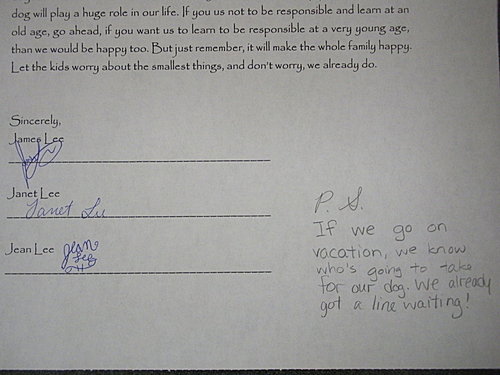 dog will play a huge role in our life. If you us not to be responsible and learn at an
old age, go ahead, if you want us to learn to be responsible at a very young age,
than we would be happy too. But just remember, it will make the whole family happy.
Let the kids worry about the smallest things, and don't worry, we already do.
Sincerely,
James Lee
Janet Lee
Janet Lu
Jean Lee
Jean
Lee
P. S.
If we go on
vacation, we know
who's going to take
for our dog. We already
got a line waiting!